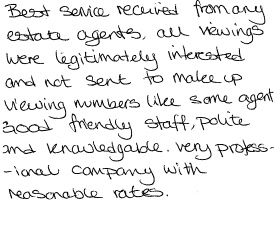 Best service received from any
estate agents, all viewings
were legitimately interested
and not sent to make up
viewing numbers like some agent
Good friendly staff, polite
and knowledgable. very profess-
-ional company with
reasonable rates.